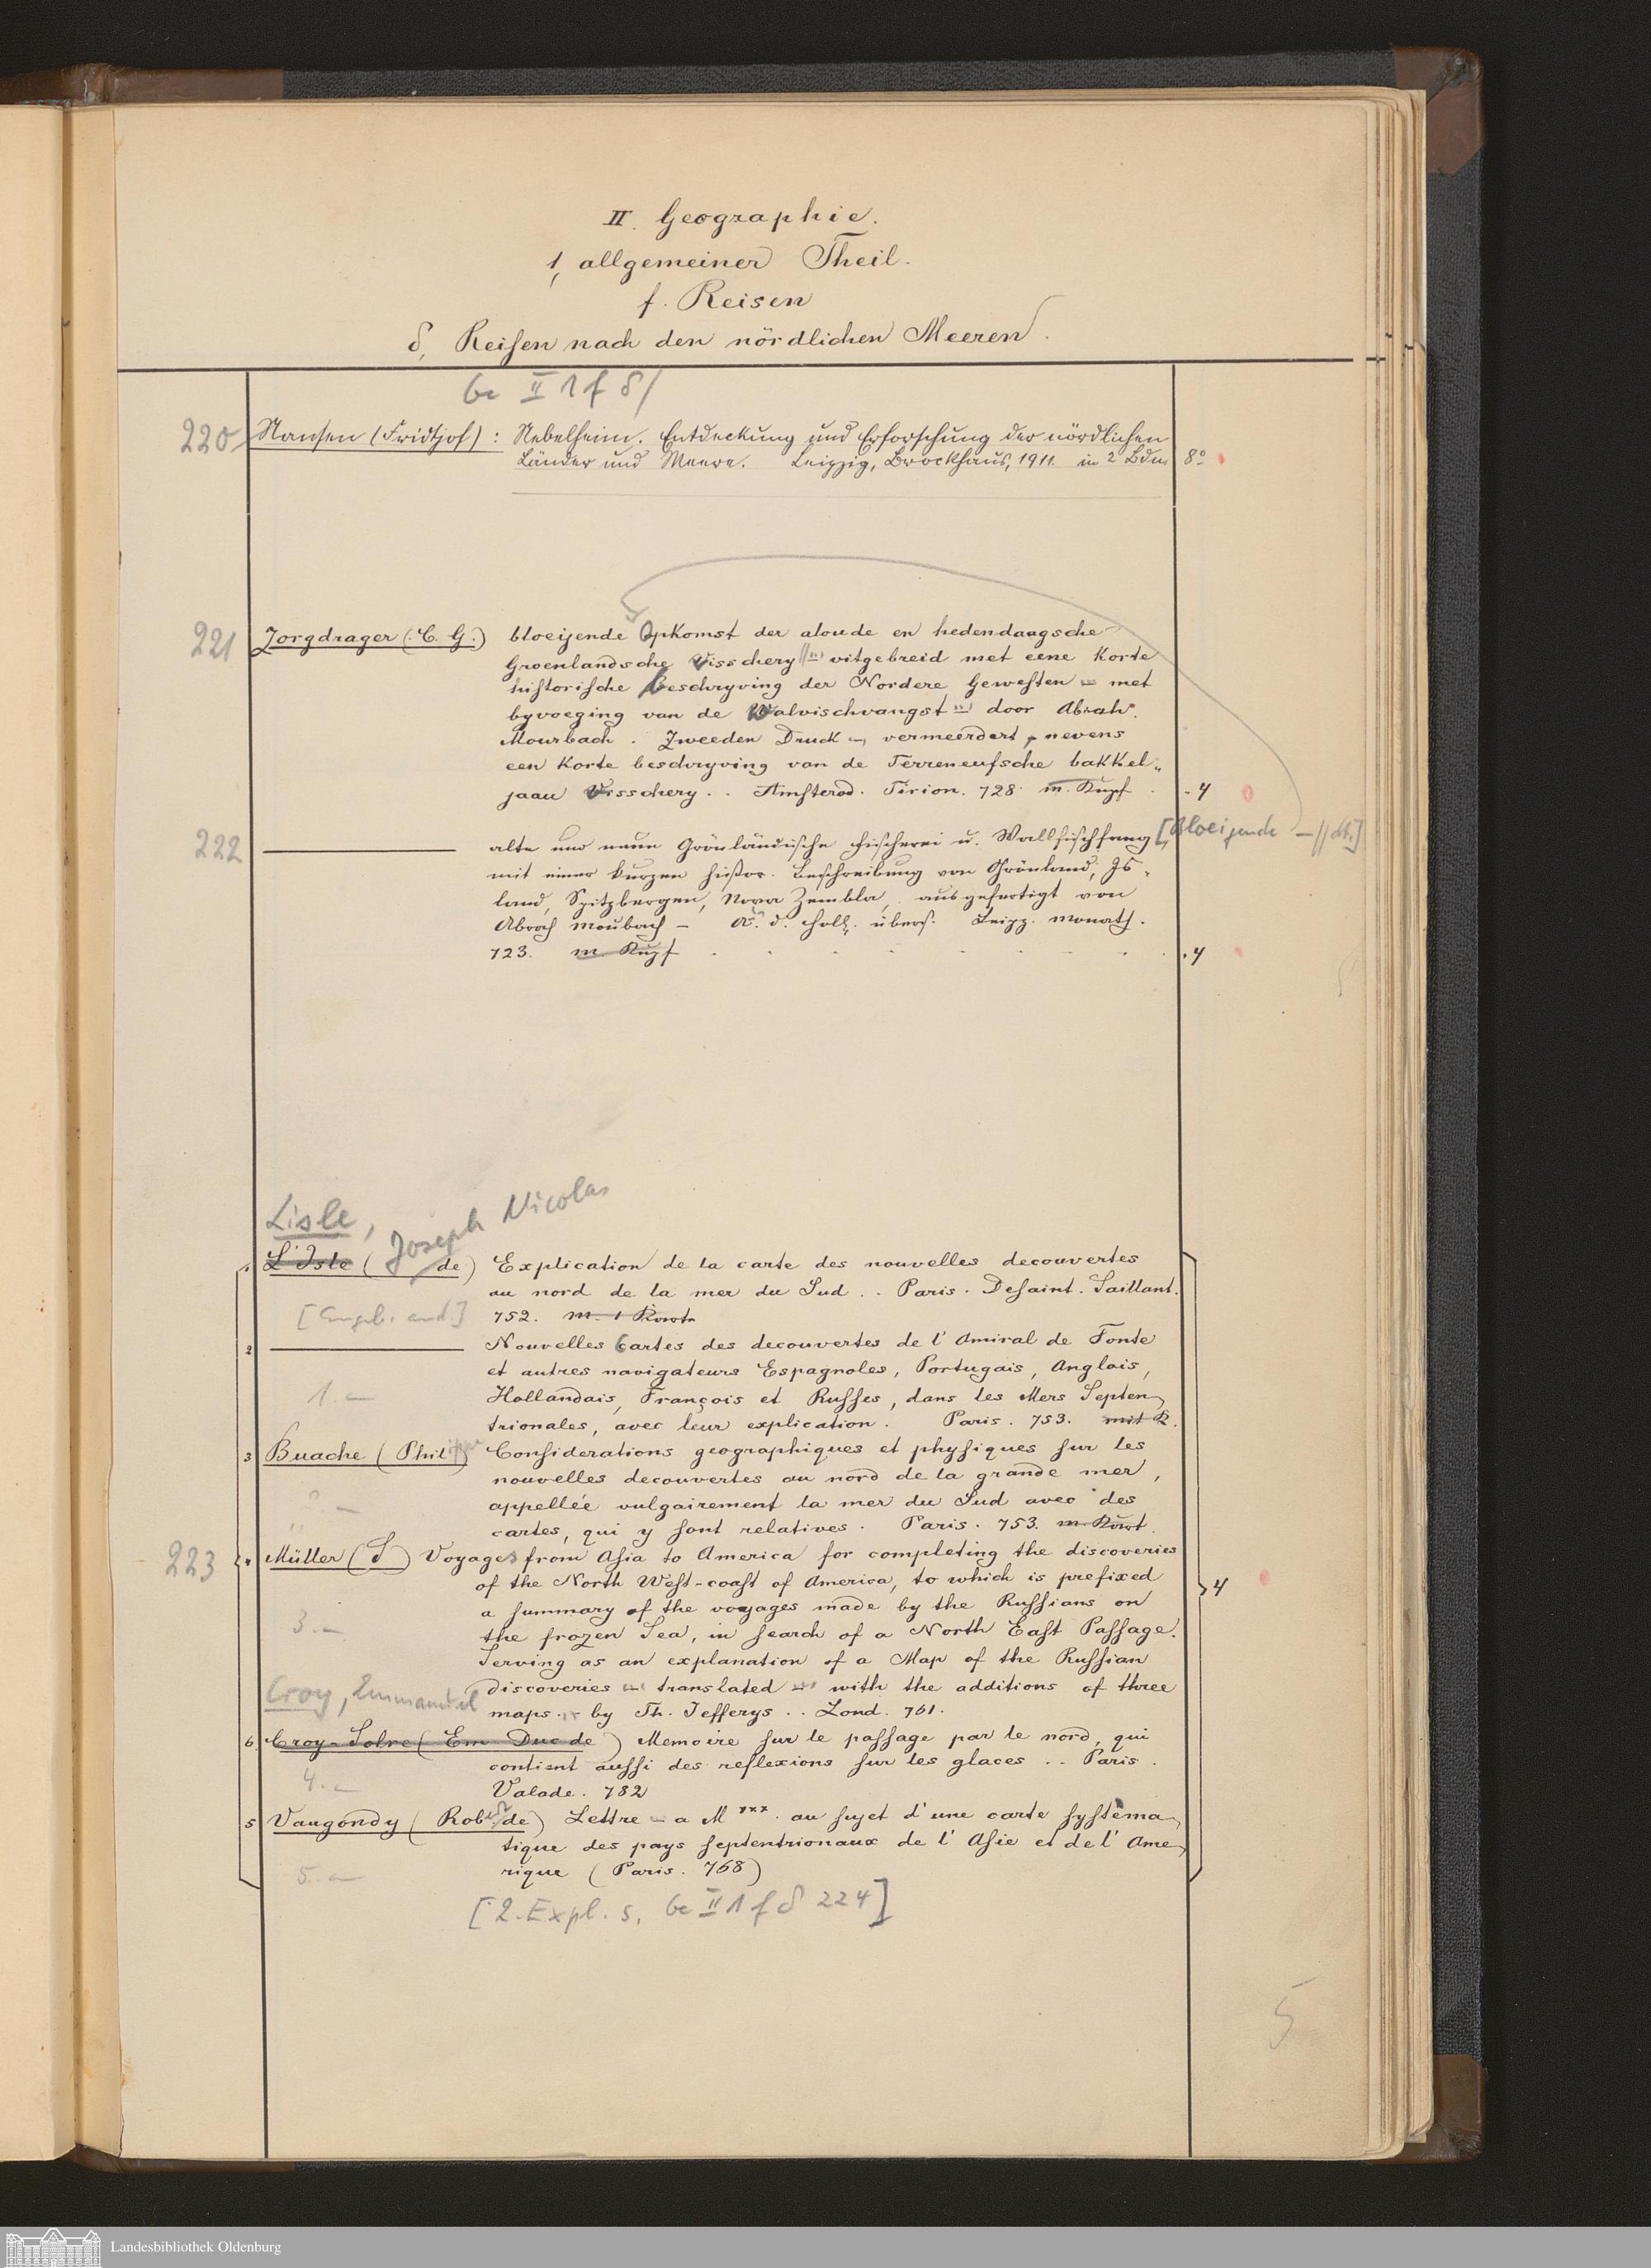 II. Geographie.
1, allgemeiner Theil.
f. Reisen
δ, Reisen nach den nördlichen Meeren.
Ge II 1 f δ/
220 Nansen (Fridtjof): Nebelheim. Entdeckung und Erforschung der nördlichen
Länder und Meere. Leipzig, Brockhaus, 1911. in 2 Bdn. 8°
221 Zorgdrager (C. G.) bloeijende Opkomst der aloude en hedendaagsche
Groenlandsche Visschery // uitgebreid met eene Korte
historische Beschryving der Nordere Gewesten met
byvoeging van de Walvischvangst door Abrah.
Mourbach. Zweeden Druck vermeerdert, nevens
een Korte beschryving van de Terreneufsche bakkel„
jaau Visschery. . Amsterod. Tirion. 728. m. Kupf. 4
222 alte und neue Grönländische Fischerei u. Wallfischfang, [Bloeijende — // dt.]
mit einer kurzen histor. Beschreibung von Grönland, Is„
land, Spitzbergen, Nova Zembla, ausgefertigt von
Abrah Moubach – A. d. Holl. übers. Leipz. Monath.
723. m. Kupf. 4
Lisle, Joseph Nicolas
1. L'Isle ( de) Explication de la carte des nouvelles decouvertes
au nord de la mer du Sud . . Paris. Desaint. Saillant.
[Angeb. and.] 752. m. 1 Karte
2 Nouvelles Cartes des decouvertes de l'Amiral de Fonte
et autres navigateurs Espagnoles, Portugais, Anglois,
1. – Hollandais, François et Russes, dans les Mers Septen
trionales, avec leur explication. Paris. 753. mit K.
3 Buache (Philippe) Considerations geographiques et physiques sur les
nouvelles decouvertes au nord de la grande mer,
2. – appellée vulgairement la mer du Sud avec des
cartes, qui y sont relatives. Paris. 753. m. Kart.
223 4 Müller (S) Voyages from Asia to America for completing the discoveries
of the North West-coast of America, to which is prefixed
4
a summary of the voyages made by the Russians on
3. – the frozen Sea, in search of a North East Passage.
Serving as an explanation of a Map of the Russian
Croy, Emmanuel discoveries translated with the additions of three
maps. by Th. Jefferys . . Lond. 761.
6. Croy-Solre (Em Duc de) Memoire sur le passage par le nord, qui
contient aussi des reflexions sur les glaces . . Paris.
4. – Valade. 782
5 Vaugondy (Robert de) Lettre a M ***. au sujet d'une carte systèma
tique des pays septentrionaux de l'Asie et de l'Ame
5. – rique (Paris. 768)
[2. Expl. s. Ge II 1 f δ 224]
5
Landesbibliothek Oldenburg